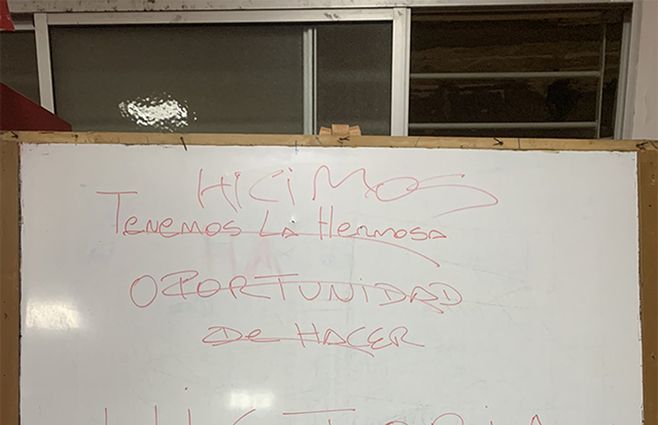 HICIMOS
Tenemos La Hermosa
OPORTUNIDAD
De HACER
HISTORIA